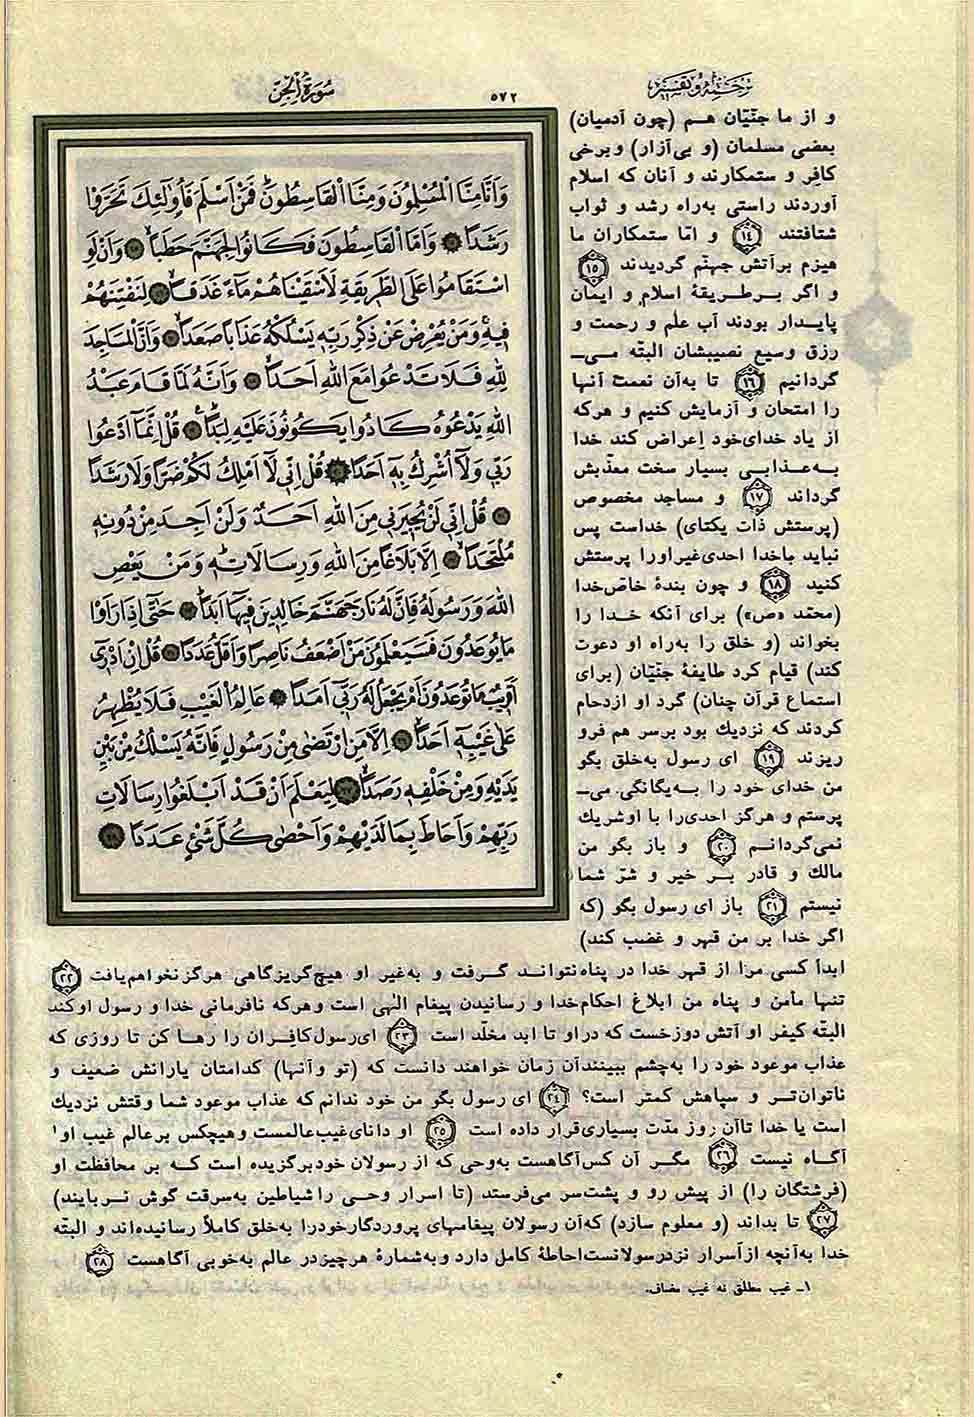 ترجمه و تفسیر
۵۷۲
سورة الجن
وَاَنَّا مِنَّا الْمُسْلِمُونَ وَمِنَّا الْقَاسِطُونَ فَمَنْ اَسْلَمَ فَاُولٰئِكَ تَحَرَّوْا
رَشَدًا ۝ وَاَمَّا الْقَاسِطُونَ فَكَانُوا لِجَهَنَّمَ حَطَبًا ۝ وَاَنْ لَوِ
اسْتَقَامُوا عَلَى الطَّرِيقَةِ لَاَسْقَيْنَاهُمْ مَاءً غَدَقًا ۝ لِنَفْتِنَهُمْ
فِيهِ وَمَنْ يُعْرِضْ عَنْ ذِكْرِ رَبِّهِ يَسْلُكْهُ عَذَابًا صَعَدًا ۝ وَاَنَّ الْمَسَاجِدَ
لِلّٰهِ فَلَا تَدْعُوا مَعَ اللّٰهِ اَحَدًا ۝ وَاَنَّهُ لَمَّا قَامَ عَبْدُ
اللّٰهِ يَدْعُوهُ كَادُوا يَكُونُونَ عَلَيْهِ لِبَدًا ۝ قُلْ اِنَّمَا اَدْعُوا
رَبِّي وَلَا اُشْرِكُ بِهِ اَحَدًا ۝ قُلْ اِنِّي لَا اَمْلِكُ لَكُمْ ضَرًّا وَلَا رَشَدًا
۝ قُلْ اِنِّي لَنْ يُجِيرَنِي مِنَ اللّٰهِ اَحَدٌ وَلَنْ اَجِدَ مِنْ دُونِهِ
مُلْتَحَدًا ۝ اِلَّا بَلَاغًا مِنَ اللّٰهِ وَرِسَالَاتِهِ وَمَنْ يَعْصِ
اللّٰهَ وَرَسُولَهُ فَاِنَّ لَهُ نَارَ جَهَنَّمَ خَالِدِينَ فِيهَا اَبَدًا ۝ حَتّٰى اِذَا رَاَوْا
مَا يُوعَدُونَ فَسَيَعْلَمُونَ مَنْ اَضْعَفُ نَاصِرًا وَاَقَلُّ عَدَدًا ۝ قُلْ اِنْ اَدْرِي
اَقَرِيبٌ مَا تُوعَدُونَ اَمْ يَجْعَلُ لَهُ رَبِّي اَمَدًا ۝ عَالِمُ الْغَيْبِ فَلَا يُظْهِرُ
عَلٰى غَيْبِهِ اَحَدًا ۝ اِلَّا مَنِ ارْتَضٰى مِنْ رَسُولٍ فَاِنَّهُ يَسْلُكُ مِنْ بَيْنِ
يَدَيْهِ وَمِنْ خَلْفِهِ رَصَدًا ۝ لِيَعْلَمَ اَنْ قَدْ اَبْلَغُوا رِسَالَاتِ
رَبِّهِمْ وَاَحَاطَ بِمَا لَدَيْهِمْ وَاَحْصٰى كُلَّ شَيْءٍ عَدَدًا ۝
و از ما جنّیان هم (چون آدمیان)
بعضی مسلمان (و بی‌آزار) و برخی
کافر و ستمکارند و آنان که اسلام
آوردند راستی به‌راه رشد و ثواب
شتافتند ۱۴ و امّا ستمکاران ما
هیزم برآتش جهنّم گردیدند ۱۵
و اگر بر طریقهٔ اسلام و ایمان
پایدار بودند آب علم و رحمت و
رزق وسیع نصیبشان البتّه می‌ـ
گردانیم ۱۶ تا به‌آن نعمت آنها
را امتحان و آزمایش کنیم و هرکه
از یاد خدای‌خود اِعراض کند خدا
به‌عذابی بسیار سخت معذّبش
گرداند ۱۷ و مساجد مخصوص
(پرستش ذات یکتای) خداست پس
نباید باخدا احدی‌غیراورا پرستش
کنید ۱۸ و چون بندهٔ خاص‌خدا
(محمّد «ص») برای آنکه خدا را
بخواند (و خلق را به‌راه او دعوت
کند) قیام کرد طایفهٔ جنّیان (برای
استماع قرآن چنان) گرد او ازدحام
کردند که نزدیك بود برسر هم فرو
ریزند ۱۹ ای رسول به‌خلق بگو
من خدای خود را به‌یگانگی می‌ـ
پرستم و هرگز احدی‌را با اوشریك
نمی‌گردانم ۲۰ و باز بگو من
مالك و قادر بر خیر و شرّ شما
نیستم ۲۱ باز ای رسول بگو (که
اگر خدا بر من قهر و غضب کند)
ابداً کسی مرا از قهر خدا در پناه‌نتواند گرفت و به‌غیر او هیچ‌گریزگاهی هرگزنخواهم‌یافت ۲۲
تنها مأمن و پناه من ابلاغ احکام‌خدا و رسانیدن پیغام الٰهی است وهرکه نافرمانی خدا و رسول اوکند
البتّه کیفر او آتش دوزخست که دراو تا ابد مخلّد است ۲۳ ای‌رسول‌کافران را رها کن تا روزی که
عذاب موعود خود را به‌چشم ببینندآن زمان خواهند دانست که (تو وآنها) کدامتان یارانش ضعیف و
ناتوان‌تر و سپاهش کمتر است؟ ۲۴ ای رسول بگو من خود ندانم که عذاب موعود شما وقتش نزدیك
است یا خدا تاآن روز مدّت بسیاری‌قرار داده است ۲۵ او دانای‌غیب‌عالمست وهیچکس برعالم غیب او۱
آگاه نیست ۲۶ مگر آن کس‌آگاهست به‌وحی که از رسولان خودبرگزیده است که بر محافظت او
(فرشتگان را) از پیش رو و پشت‌سر می‌فرستد (تا اسرار وحی راشیاطین به‌سرقت گوش نربایند)
۲۷ تا بداند (و معلوم سازد) که‌آن رسولان پیغامهای پروردگارخودرا به‌خلق کاملاً رسانیده‌اند و البتّه
خدا به‌آنچه ازاسرار نزدرسولانست‌احاطهٔ کامل دارد وبه‌شمارهٔ هرچیزدر عالم به‌خوبی آگاهست ۲۸
۱ـ غیب مطلق نه غیب مضاف.